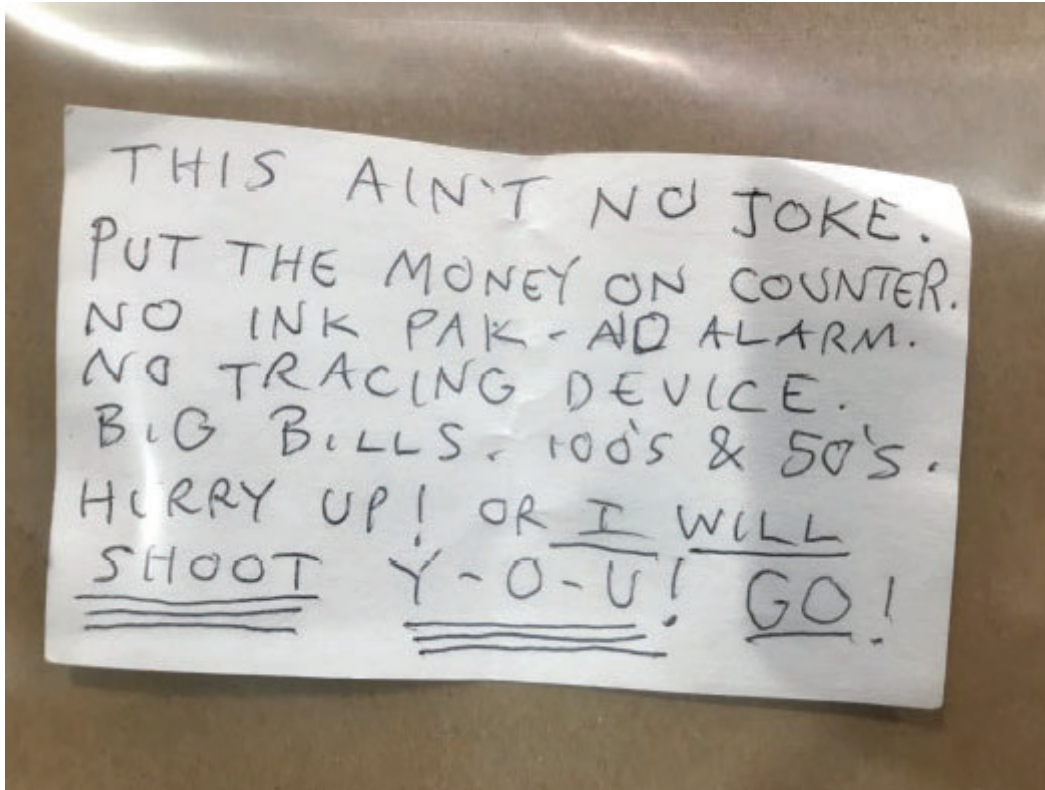 THIS AIN'T NO JOKE.
PUT THE MONEY ON COUNTER.
NO INK PAK - NO ALARM.
NO TRACING DEVICE.
BIG BILLS. 100's & 50's.
HURRY UP! OR I WILL
SHOOT Y-O-U! GO!